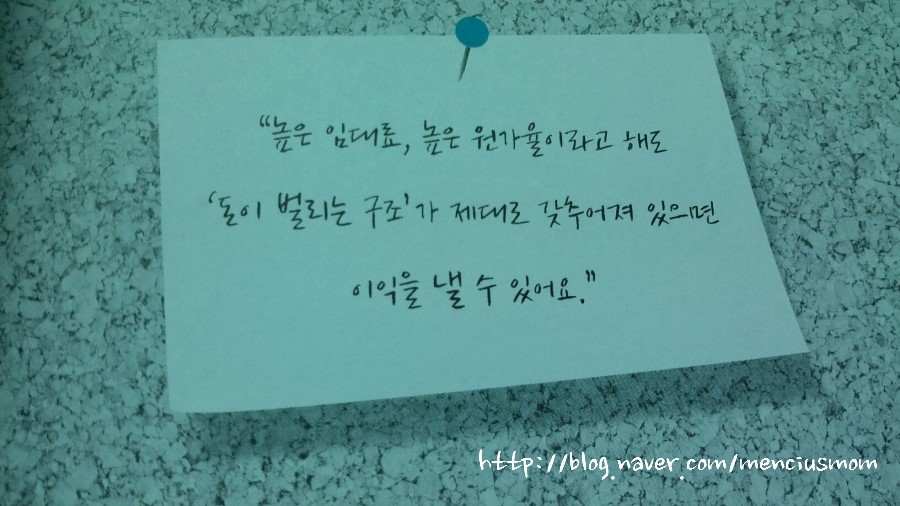 "높은 임대료, 높은 원가율이라고 해도
'돈이 벌리는 구조'가 제대로 갖추어져 있으면
이익을 낼 수 있어요."
http://blog.naver.com/menciusmom